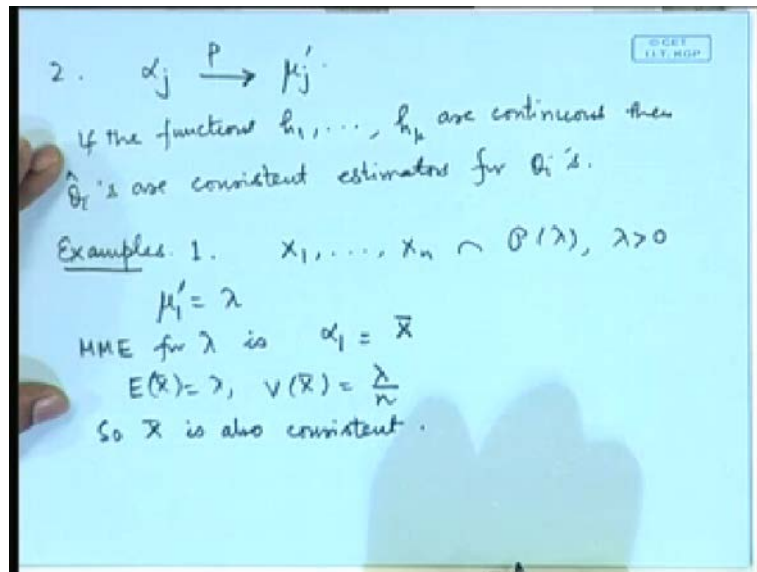 © CET
I.I.T. KGP
2. αⱼ —P→ μⱼ′.
If the functions h₁, ..., hₖ are continuous then
θ̂ᵢ's are consistent estimators for θᵢ's.
Examples. 1. X₁, ..., Xₙ ~ P(λ), λ>0
μ₁′ = λ
MME for λ is α₁ = X̄
E(X̄) = λ, V(X̄) = λ/n
So X̄ is also consistent.